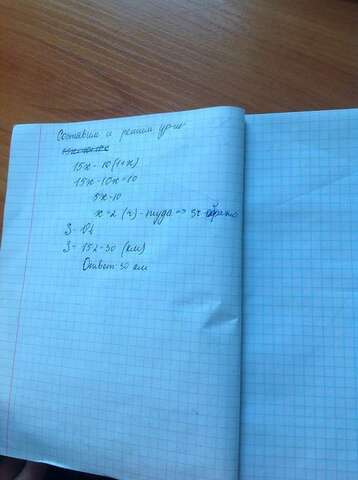 Составим и решим ур-ие
15x = 10(1+x)
15x - 10x = 10
5x = 10
x = 2 (ч) - туда => 3ч обратно
S = vt
S = 15·2 = 30 (км)
Ответ: 30 км